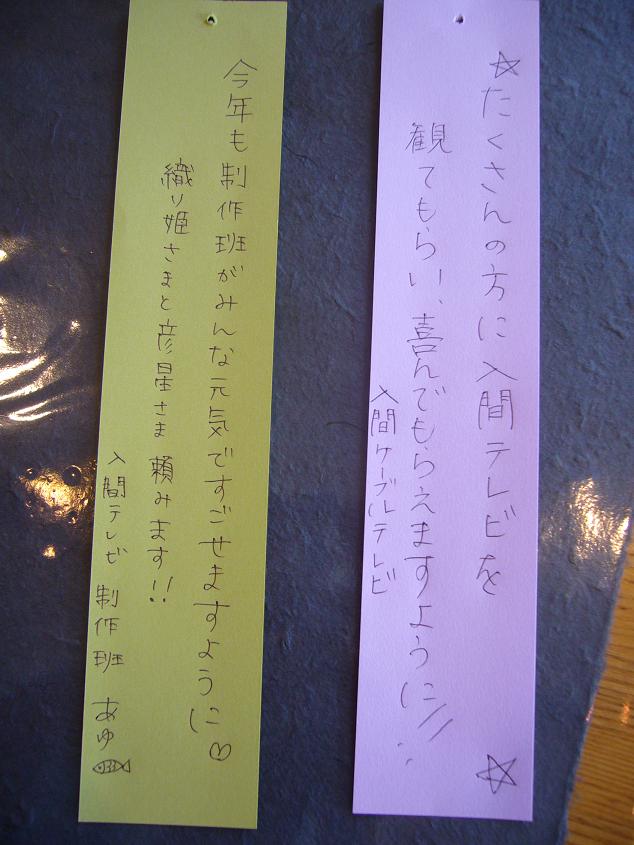 ☆たくさんの方に入間テレビを
観てもらい、喜んでもらえますように!! ☆
入間ケーブルテレビ
今年も制作班がみんな元気ですごせますように♡
織り姫さまと彦星さま 頼みます!!
入間テレビ 制作班 あゆ